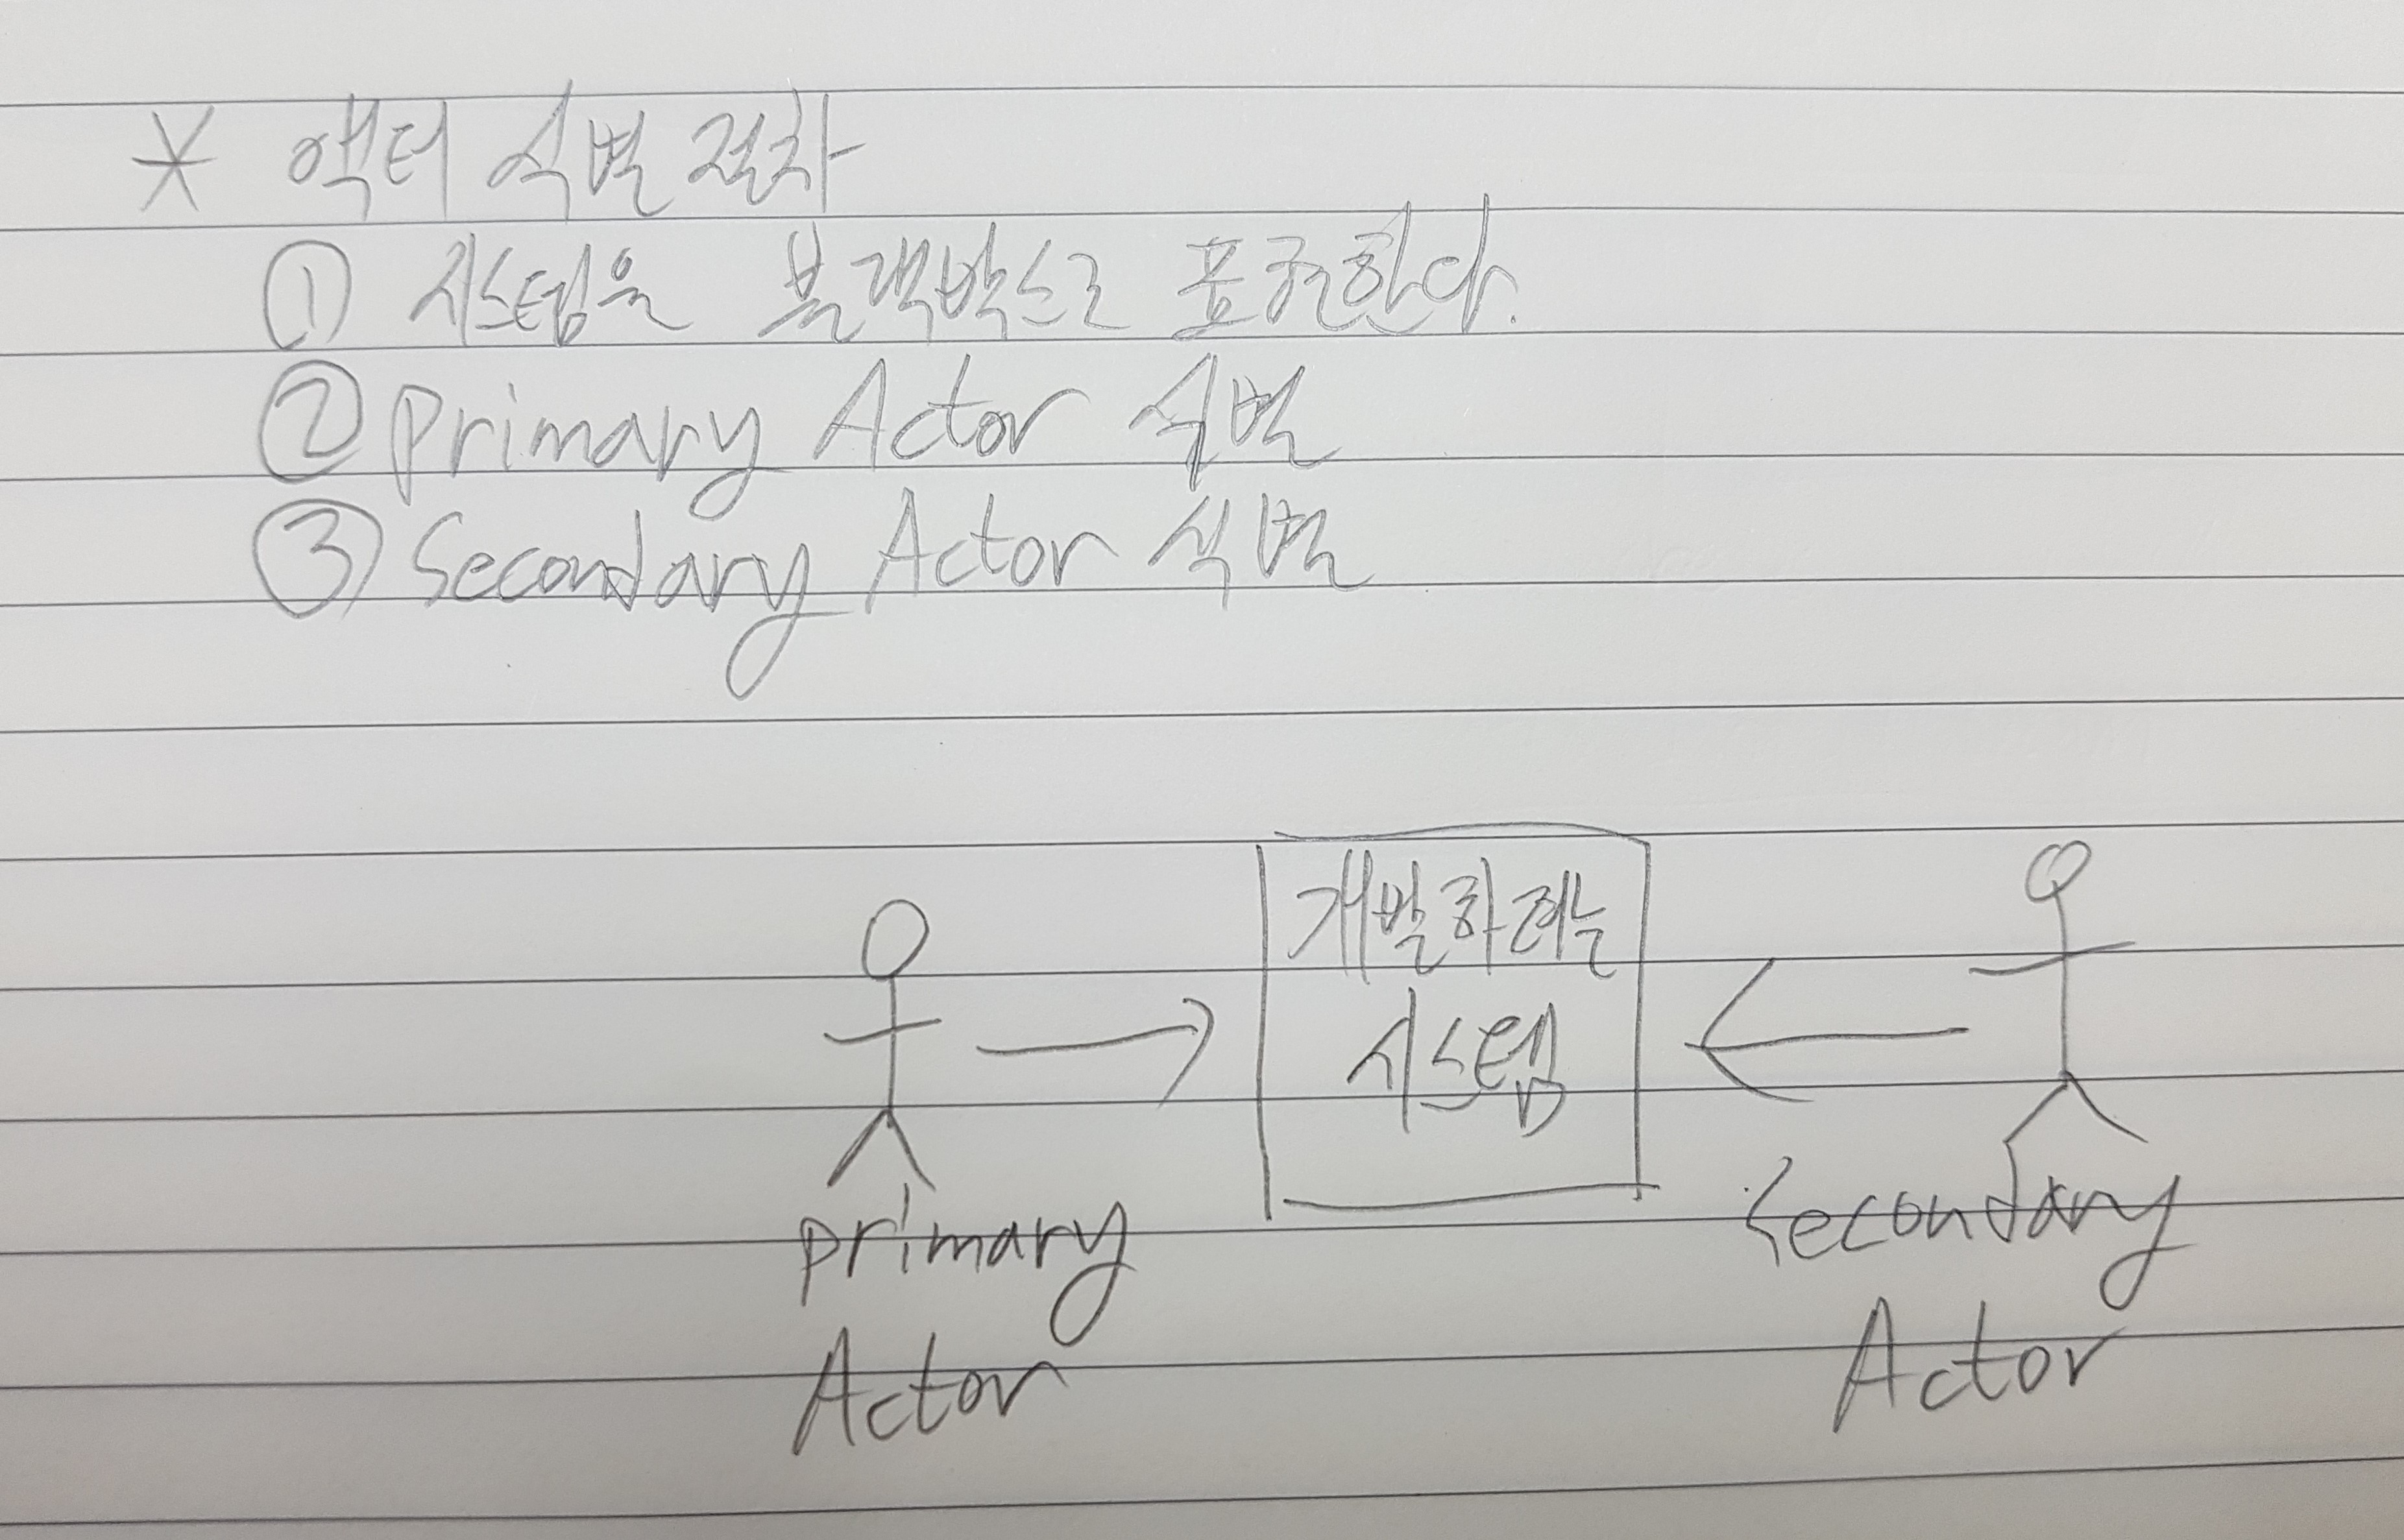 * 액터 식별 절차
① 시스템을 블랙박스로 표현한다.
② Primary Actor 식별
③ Secondary Actor 식별
개발하려는
시스템
primary
Actor
Secondary
Actor